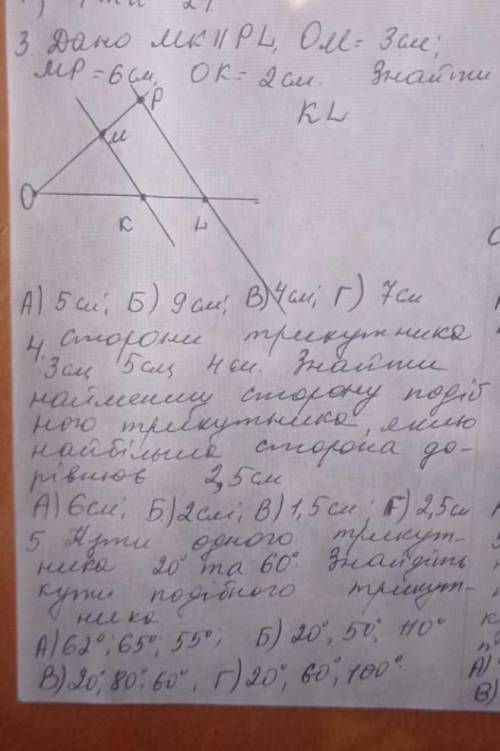 3 Дано МК || PL, ОМ = 3см;
МР = 6см, ОК = 2см. Знайти
KL
P
М
О
К
L
А) 5см; Б) 9см; В) 4см; Г) 7см
4. Сторони трикутника
3см, 5см, 4см. Знайти
найменшу сторону подіб
ного трикутника, якщо
найбільша сторона до-
рівнює 2,5см
А) 6см; Б) 2см; В) 1,5см; Г) 2,5см
5 Кути одного трикут-
ника 20° та 60°. Знайдіть
кути подібного трикут-
ника
А) 62°; 65°; 55°; Б) 20°, 50°, 110°
В) 20°, 80°, 60°, Г) 20°, 60°, 100°